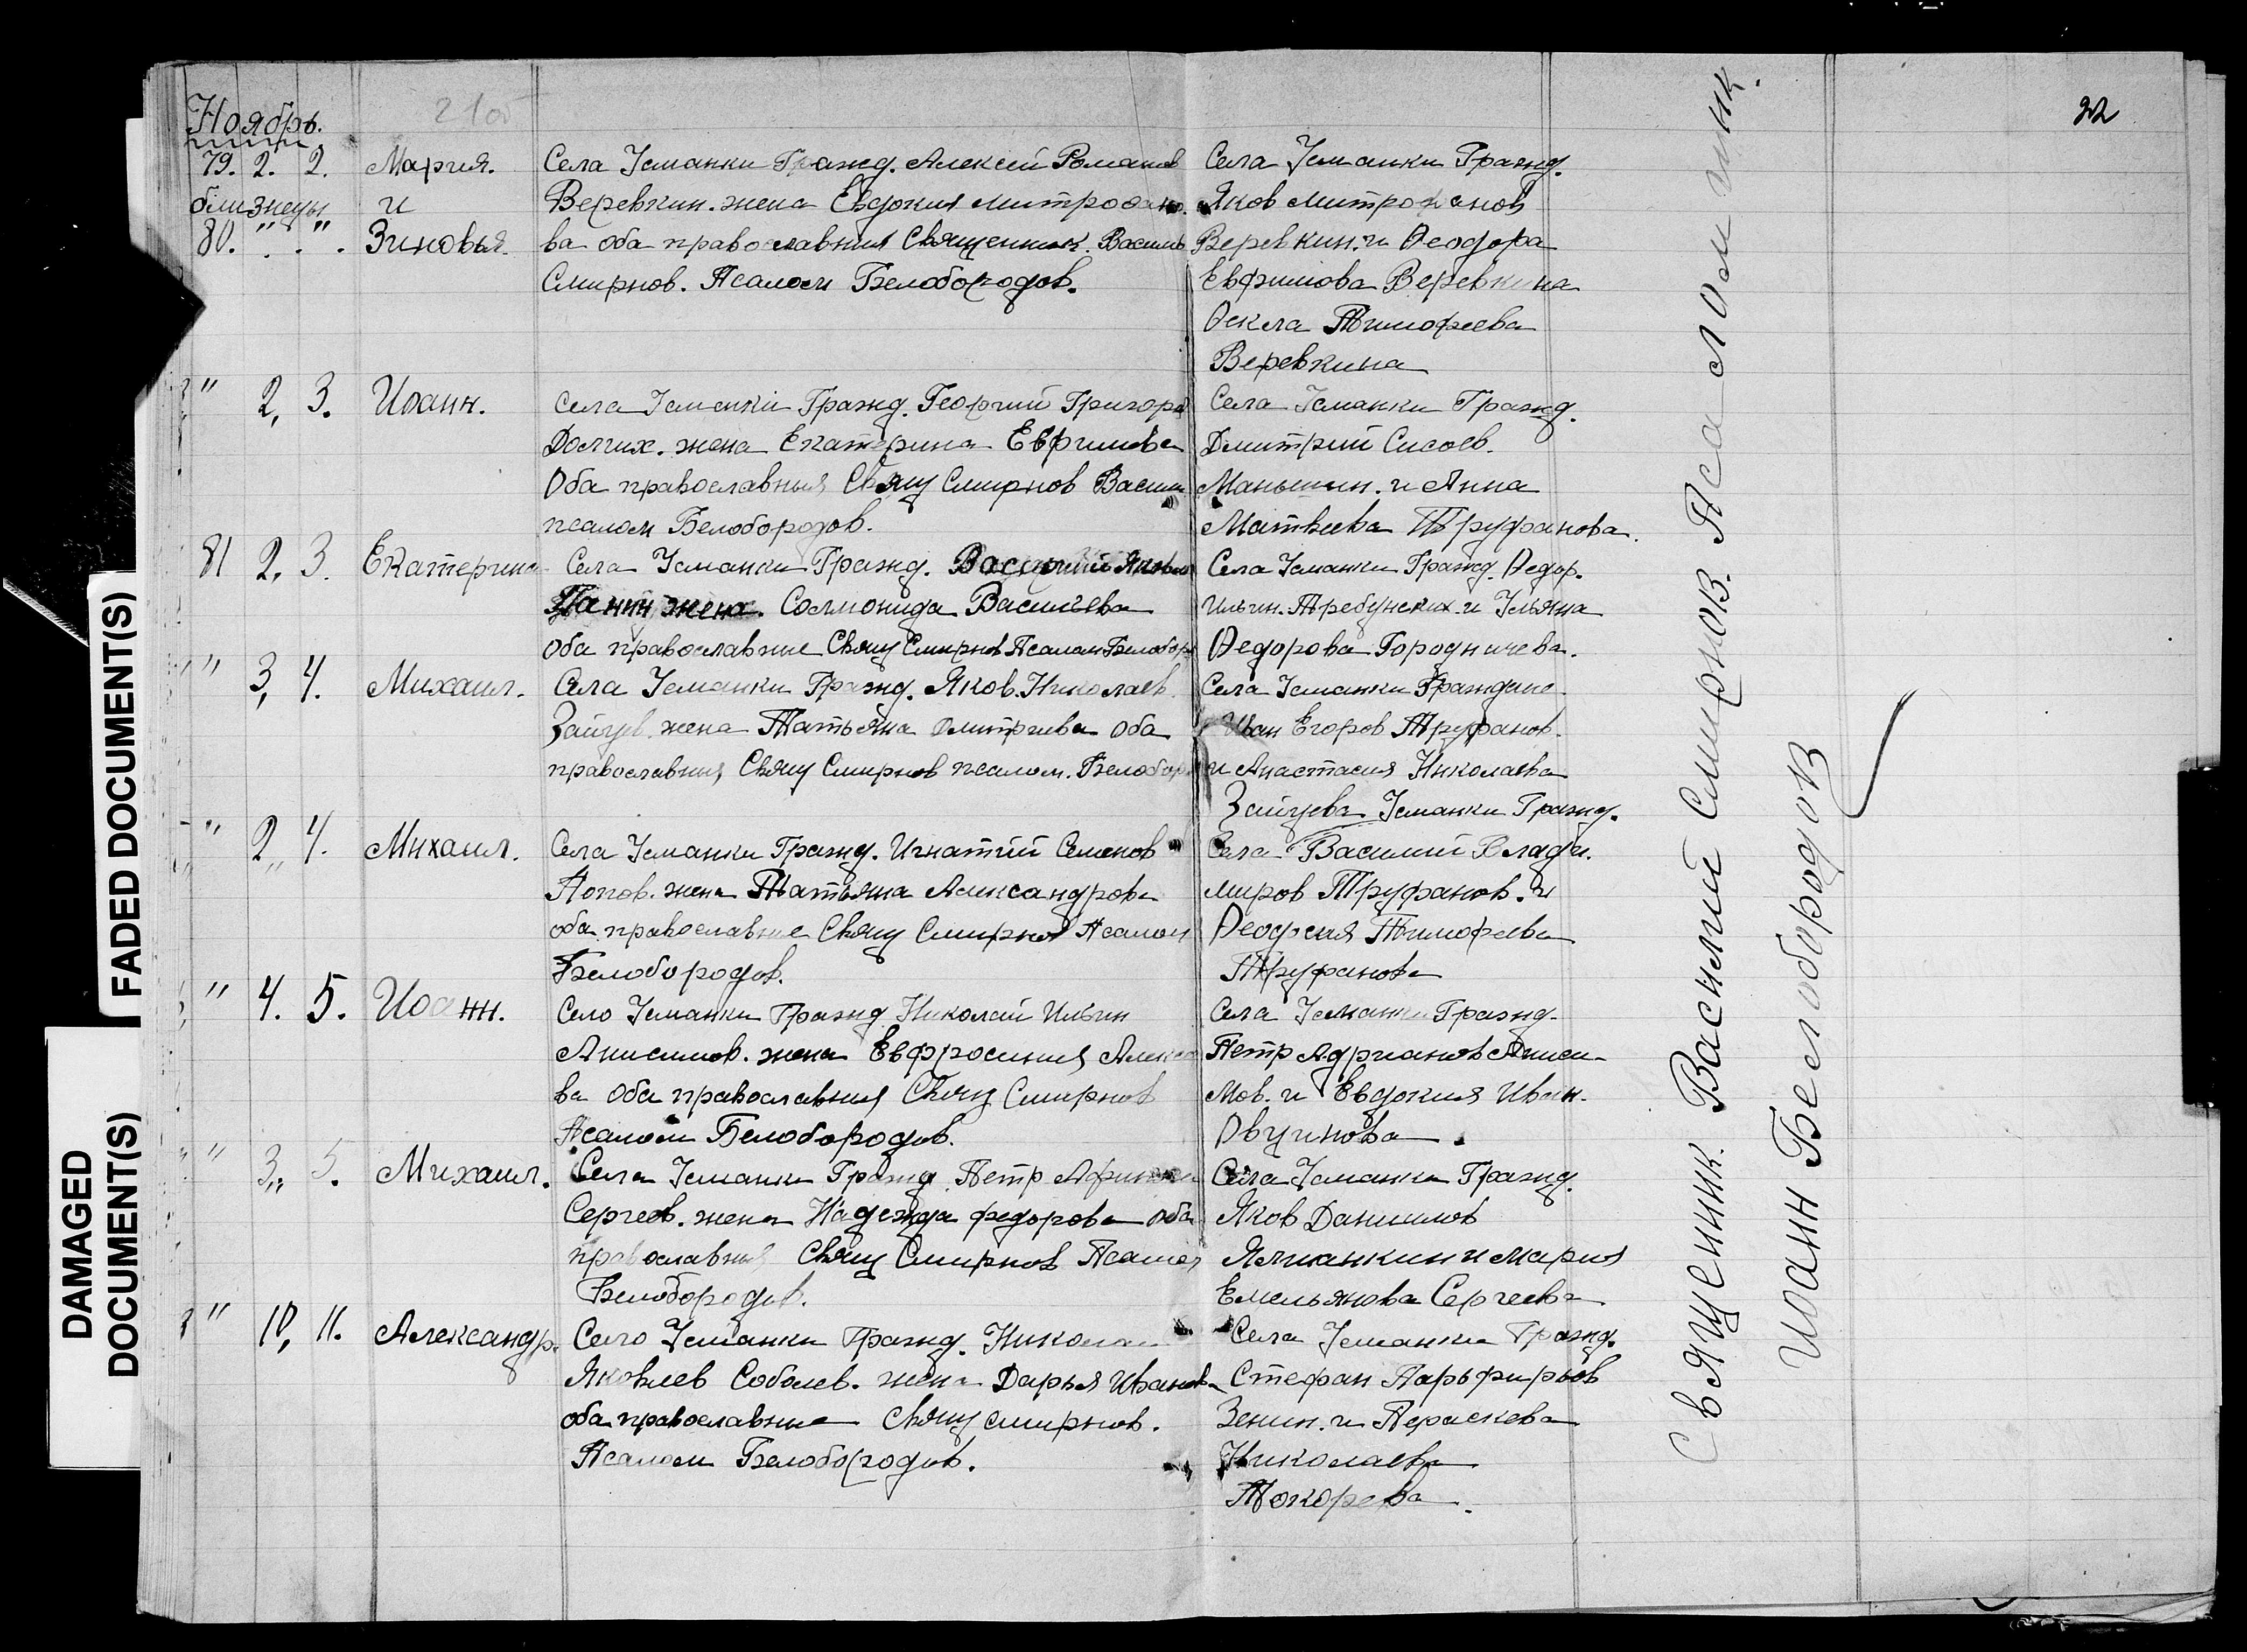 Ноябрь.
21об
22
79. 2. 2. Мария.
близнецы и
80. " " Зиновья.
Села Усманки Гражд. Алексей Романов
Веревкин. жена Евдокия Митрофано
ва оба православныя Священник. Василь
Смирнов. Псалом Белобородов.
Села Усманки Гражд.
Яков Митрофанов
Веревкин. и Феодора
Евфимова Веревкина
Фекла Тимофеева
Веревкина
" 2, 3. Иоанн.
Села Усманки Гражд. Георгий Григорв
Долгих. жена Екатерина Евфимова
Оба православныя Свящ Смирнов Васили
псалом Белобородов.
Села Усманки Гражд.
Дмитрий Сисоев.
Маньшин. и Анна
Матвеева Труфанова.
81 2. 3. Екатерина
Села Усманки Гражд. Василий
Панин жена. Соломонида Васильева
оба православные Свящ Смирнов Псалом Белобор
Села Усманки Гражд. Федор.
Ильин. Требунских. и Ульяна
Федорова Городничева.
" 3, 4. Михаил.
Села Усманки Гражд. Яков. Николаев.
Зайцев. жена Татьяна Дмитриева оба
православныя Свящ Смирнов псалом. Белобор
Села Усманки Граждане.
Иван Егоров Труфанов.
и Анастасия Николаева
Зайцева Усманки Гражд.
" 2,, 4. Михаил.
Села Усманки Гражд. Игнатий Семенов
Попов. жена Татьяна Александрова
оба православные Свящ Смирнов Псалом
Белобородов.
Села Василий Влади.
миров Труфанов. и
Тимофеева
Труфанова
" 4. 5. Иоанн.
Село Усманки Гражд Николай Ильин
Анисимов. жена Евфросиния Алексе
ва Оба православныя Свящ Смирнов
Псалом Белобородов.
Села Усманки Гражд.
Петр Адрианов Аниси-
мов. и Евдокия Иван.
Овчинова.
" 3,, 5. Михаил.
Села Усманки Гражд. Петр
Сергеев. жена Надежда Федорова оба
православныя Свящ Смирнов Псалом
Белобородов.
Села Усманки Гражд.
Яков Данилов
Ялманкин и Мария
Емельянова Сергеева
" 10, 11. Александр.
Село Усманки Гражд. Николай
Яковлев Соболев. жена Дарья Иванова
оба православные Свящ Смирнов.
Псалом Белобородов.
Села Усманки Гражд.
Стефан Парьфирьов
Зенин. и Параскева
Николаева
Токорева.
Священник. Василий Смирнов. Псаломщик.
Иоанн Белобородов
FADED DOCUMENT(S)
DAMAGED
DOCUMENT(S)